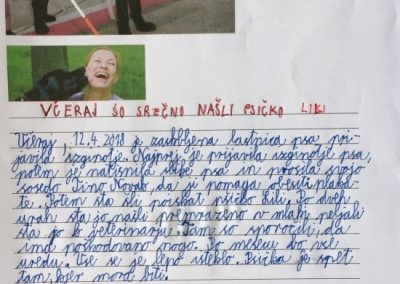 VČERAJ SO SREČNO NAŠLI PSIČKO LILI
Včeraj, 12.4.2018 je zaskrbljena lastnica psa pri-
javila izginotje. Najprej je prijavila izginotje psa,
potem je natisnila slike psa in prosila svojo
sosedo Tino Novak, da ji pomaga obesiti plaka-
te. Potem sta šli poiskat psičko Lili. Po dveh
urah sta jo našli premraženo v mlaki, peljali
sta jo k veterinarju. Tam so sporočili, da
ima poškodovano nogo. Po mesecu bo vse v
uredu. Vse se je lepo izteklo. Psička je spet
tam, kjer mora biti.